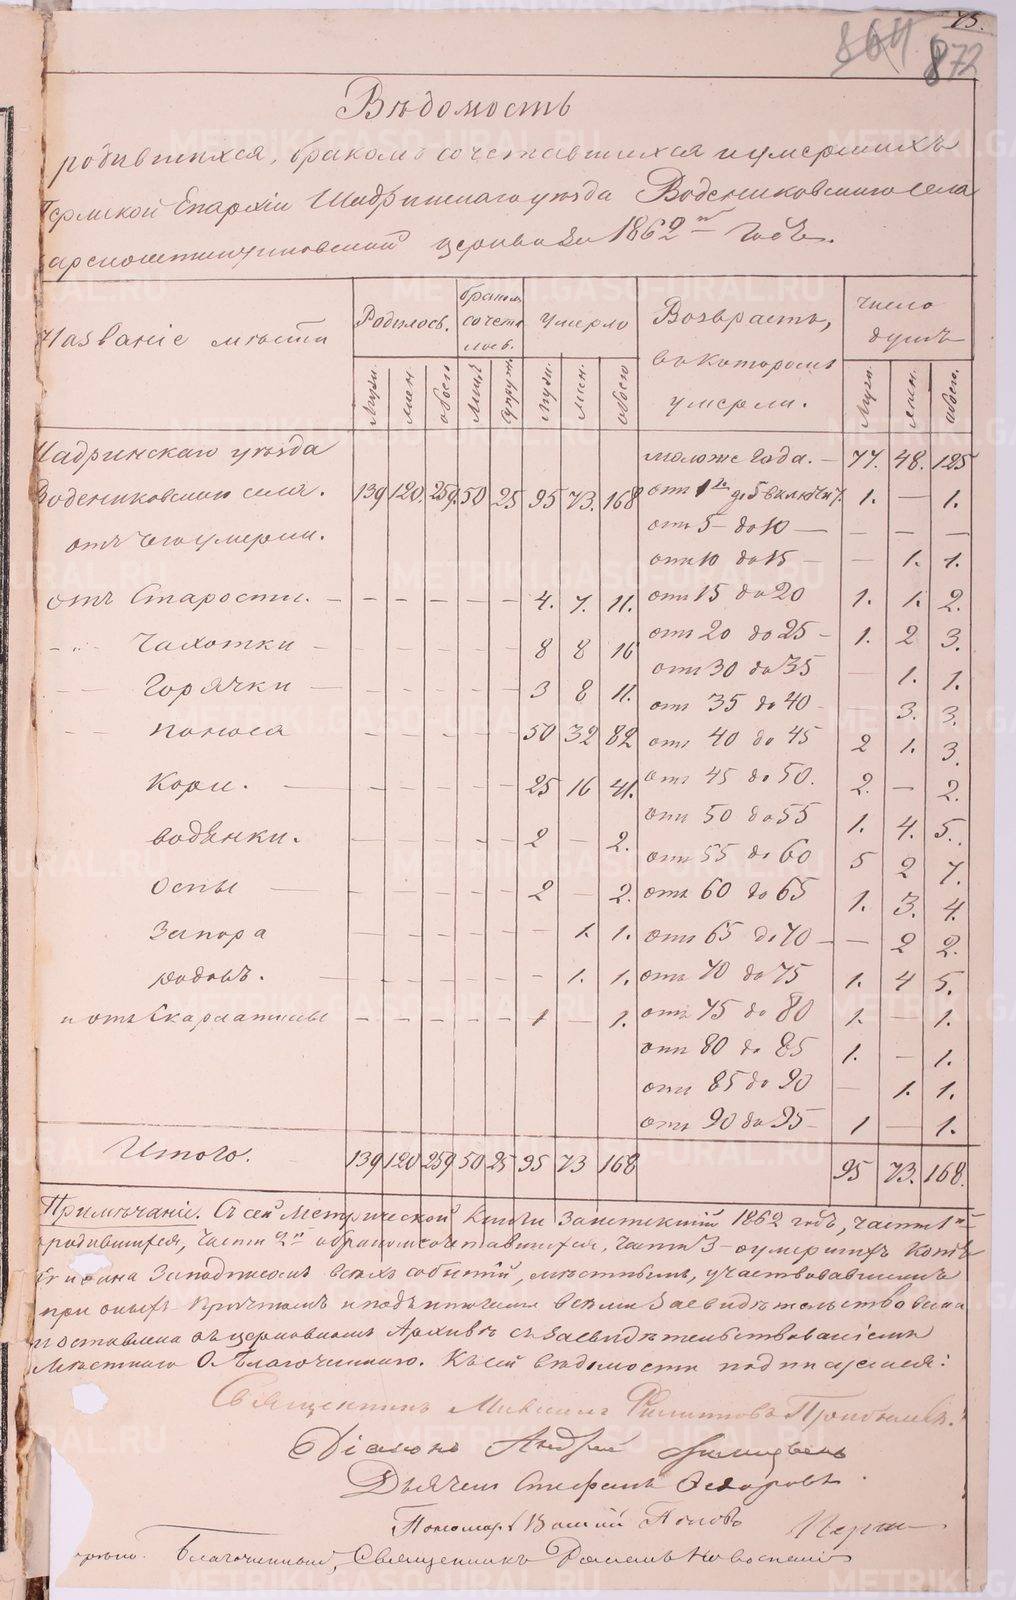 75.
864
872
Вѣдомость
родившихся, бракомъ сочетавшихся и умершихъ
Пермской Епархіи Шадринскаго уѣзда Воденниковскаго села
церкви за 1862й годъ.
Названіе мѣстъ
Родилось.
бракомъ сочеталось.
Умерло
Возврастъ, въ которомъ умерли.
число душъ
Муж. жен. обоего Лицъ супруж. Муж. жен. обоего Муж. жен. обоего.
Шадринскаго уѣзда
моложе года. — 77. 48. 125
Воденниковскаго села. 139 120. 259. 50 25 95 73. 168
отъ 1го до 5 включит. 1. — 1.
отъ чего умерли.
отъ 5 до 10 — — — —
отъ 10 до 15 — — 1. 1.
отъ Старости. — — — — — — 4. 7. 11.
отъ 15 до 20 1. 1. 2.
— „ — Чахотки — — — — — — 8 8 16
отъ 20 до 25 — 1. 2 3.
отъ 30 до 35 — 1. 1.
— — Горячки — — — — — — 3 8 11.
отъ 35 до 40 — — 3. 3.
— — поноса — — — — — 50 32 82
отъ 40 до 45 2 1. 3.
Кори. — — — — — — 25 16 41.
отъ 45 до 50. 2. — 2.
отъ 50 до 55 1. 4. 5.
водянки. — — — — — 2 — 2.
отъ 55 до 60 5 2 7.
Оспы — — — — — — 2 — 2.
отъ 60 до 65 1. 3. 4.
Запора — — — — — — 1. 1.
отъ 65 до 70 — — 2 2.
родовъ. — — — — — — 1. 1.
отъ 70 до 75 1. 4 5.
и отъ Скарлатины — — — — — 1 — 1.
отъ 75 до 80 1. — 1.
отъ 80 до 85 1. — 1.
отъ 85 до 90 — 1. 1.
отъ 90 до 95 — 1 — 1.
Итого. 139 120 259 50 25 95 73 168 95 73. 168.
Примѣчаніе. Съ сей Метрической Книги за истекшій 1862 годъ, части 1й
о родившихся, части 2й о бракомъ сочетавшихся, части 3 — о умершихъ
за подписомъ всѣхъ событій, мѣстнымъ, участвовавшимъ
при оныхъ причтомъ и подъ
и оставлена въ церковномъ Архивѣ съ засвидѣтельствованіемъ
Мѣстнаго О. Благочиннаго. Къ сей вѣдомости подписуемся:
Священникъ Михаилъ Филиповъ
Діаконъ Андрей
Дьячекъ Стефанъ Ѳедоровъ
Пономарь Попов
Благочинный, Священникъ Романъ
METRIKI.GASO-URAL.RU